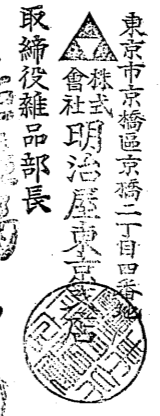 東京市京橋區京橋二丁目四番地
株式會社明治屋東京支店
取締役雑品部長